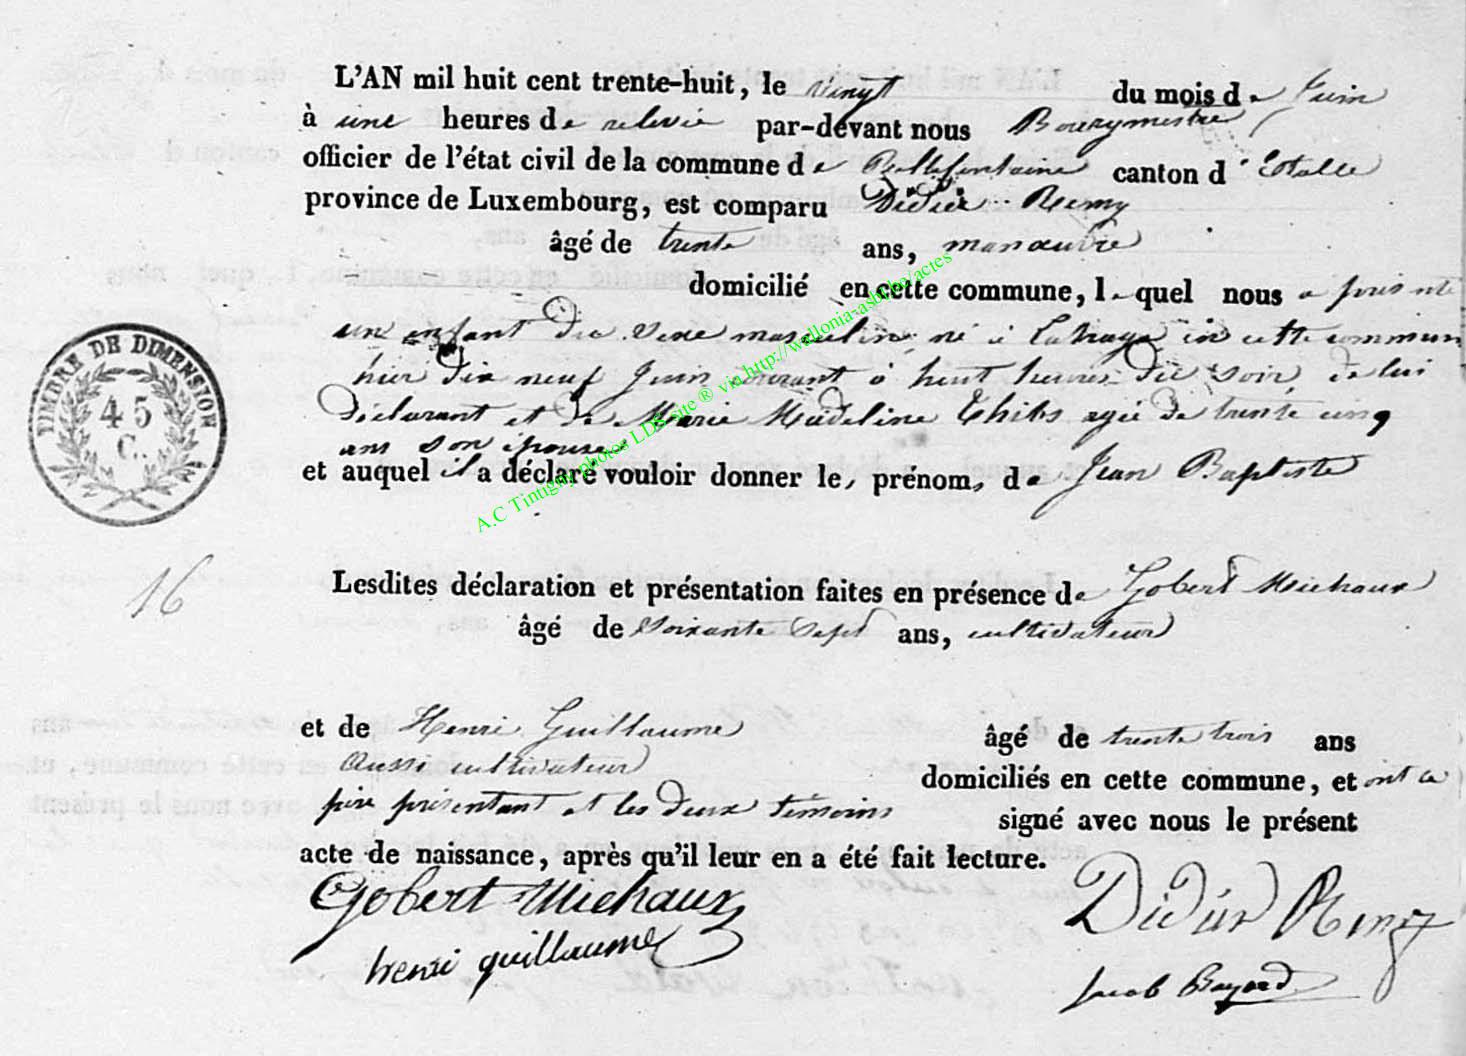 L'AN mil huit cent trente-huit, le vingt du mois de Juin
à une heures de relevée par-devant nous Bourgmestre
officier de l'état civil de la commune de Bellefontaine canton d'Etalle
province de Luxembourg, est comparu Didier Remy
âgé de trente ans, manœuvre
domicilié en cette commune, lequel nous a présenté
un enfant du sexe masculin, né à Lahage en cette commun
hier dix neuf Juin courant à huit heures du soir, de lui
déclarant et de Marie Madeline agée de trente cinq
ans son épouse
et auquel il a déclaré vouloir donner les prénoms de Jean Baptiste
TIMBRE DE DIMENSION
45
C.
A.C Tintigny photos LDS site ® via http://wallonia-asbl.be/actes
16
Lesdites déclaration et présentation faites en présence de Gobert Michaux
âgé de soixante sept ans, cultivateur
et de Henri Guillaume âgé de trente trois ans
aussi cultivateur domiciliés en cette commune, et ont le
père présentant et les deux témoins signé avec nous le présent
acte de naissance, après qu'il leur en a été fait lecture.
Gobert Michaux Didier Remy
henri guillaume Jacob Bayard